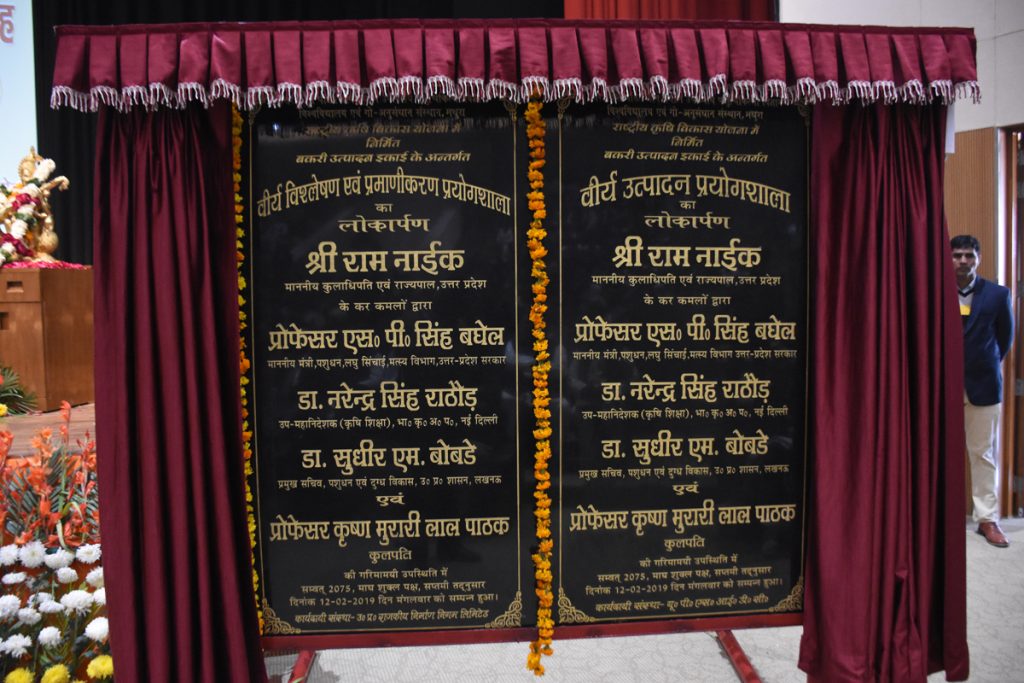 ह
विश्वविद्यालय एवं गौ-अनुसंधान संस्थान, मथुरा
राष्ट्रीय कृषि विकास योजना में
निर्मित
बकरी उत्पादन इकाई के अन्तर्गत
वीर्य विश्लेषण एवं प्रमाणीकरण प्रयोगशाला
का
लोकार्पण
श्री राम नाईक
माननीय कुलाधिपति एवं राज्यपाल,उत्तर प्रदेश
के कर कमलों द्वारा
प्रोफेसर एस० पी० सिंह बघेल
माननीय मंत्री,पशुधन,लघु सिंचाई,मत्स्य विभाग,उत्तर-प्रदेश सरकार
डा. नरेन्द्र सिंह राठौड़
उप-महानिदेशक (कृषि शिक्षा), भा० कृ० अ० प०, नई दिल्ली
डा. सुधीर एम. बोबडे
प्रमुख सचिव, पशुधन एवं दुग्ध विकास, उ० प्र० शासन, लखनऊ
एवं
प्रोफेसर कृष्ण मुरारी लाल पाठक
कुलपति
की गरिमामयी उपस्थिति में
सम्वत् 2075, माघ शुक्ल पक्ष, सप्तमी तद्नुसार
दिनांक 12-02-2019 दिन मंगलवार को सम्पन्न हुआ।
कार्यदायी संस्था- उ० प्र० राजकीय निर्माण निगम लिमिटेड
विश्वविद्यालय एवं गौ-अनुसंधान संस्थान, मथुरा
राष्ट्रीय कृषि विकास योजना में
निर्मित
बकरी उत्पादन इकाई के अन्तर्गत
वीर्य उत्पादन प्रयोगशाला
का
लोकार्पण
श्री राम नाईक
माननीय कुलाधिपति एवं राज्यपाल,उत्तर प्रदेश
के कर कमलों द्वारा
प्रोफेसर एस० पी० सिंह बघेल
माननीय मंत्री,पशुधन,लघु सिंचाई,मत्स्य विभाग उत्तर-प्रदेश सरकार
डा. नरेन्द्र सिंह राठौड़
उप-महानिदेशक (कृषि शिक्षा), भा० कृ० अ० प०, नई दिल्ली
डा. सुधीर एम. बोबडे
प्रमुख सचिव, पशुधन एवं दुग्ध विकास, उ० प्र० शासन, लखनऊ
एवं
प्रोफेसर कृष्ण मुरारी लाल पाठक
कुलपति
की गरिमामयी उपस्थिति में
सम्वत् 2075, माघ शुक्ल पक्ष, सप्तमी तद्नुसार
दिनांक 12-02-2019 दिन मंगलवार को सम्पन्न हुआ।
कार्यदायी संस्था- यू० पी० एस० आई० डी० सी०